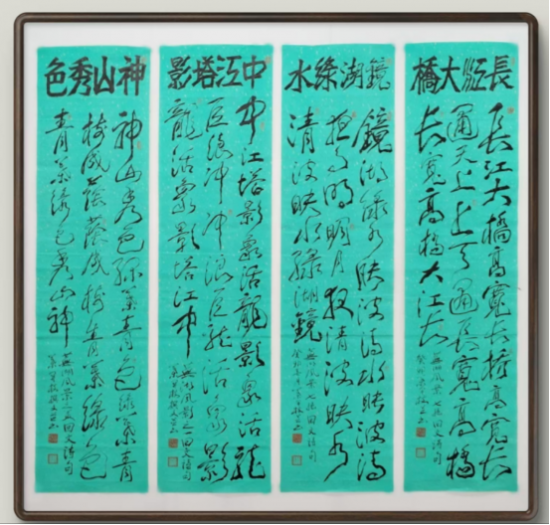 長江大橋
長江大橋高寬長橋高寬長
通天上上天通長寬高橋
長寬高橋大江長
鏡湖綠水
鏡湖綠水映波清水映波清
月明明月清波映水
清波映水綠湖鏡
中江塔影
中江塔影象活龍影象活龍
巨浪冲冲浪巨龍活象影
龍活象影塔江中
神山秀色
神山秀色綠叢青色綠叢青
樹成蔭蔭成樹青叢綠色
青叢綠色秀山神